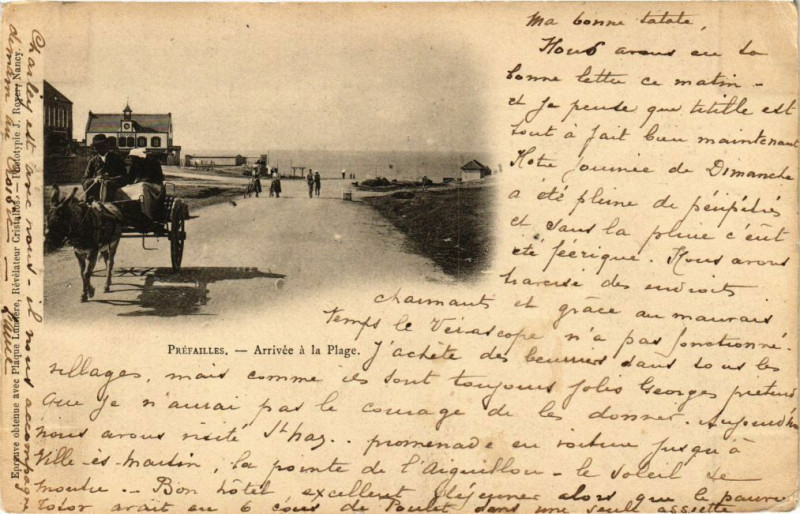 Ma bonne tatate,
Nous avons eu ta
bonne lettre ce matin -
et je pense que titille est
tout à fait bien maintenant
Notre journée de Dimanche
a été pleine de péripéties
et sans la pluie c'eut
été féerique. Nous avons
traversé des endroits
charmants et grâce au mauvais
temps le Vérascope n'a pas fonctionné.
PRÉFAILLES. — Arrivée à la Plage.
J'achète des beurriers dans tous les
villages, mais comme ils sont toujours jolis Georges prétend
que je n'aurai pas le courage de les donner. Aujourd'hui
nous avons visité St Naz.. promenade en voiture jusqu'à
Ville-ès-Martin, la pointe de l'Aiguillon - le soleil se
montre -. Bon hôtel, excellent déjeuner alors que le pauvre
Totor avait eu 6 cous de Poulet dans une seule assiette
Charles est avec nous - il nous accompagne
demain au
Epreuve obtenue avec Plaque Lumière, Révélateur Cristallos. — Phototypie J. Royer, Nancy.